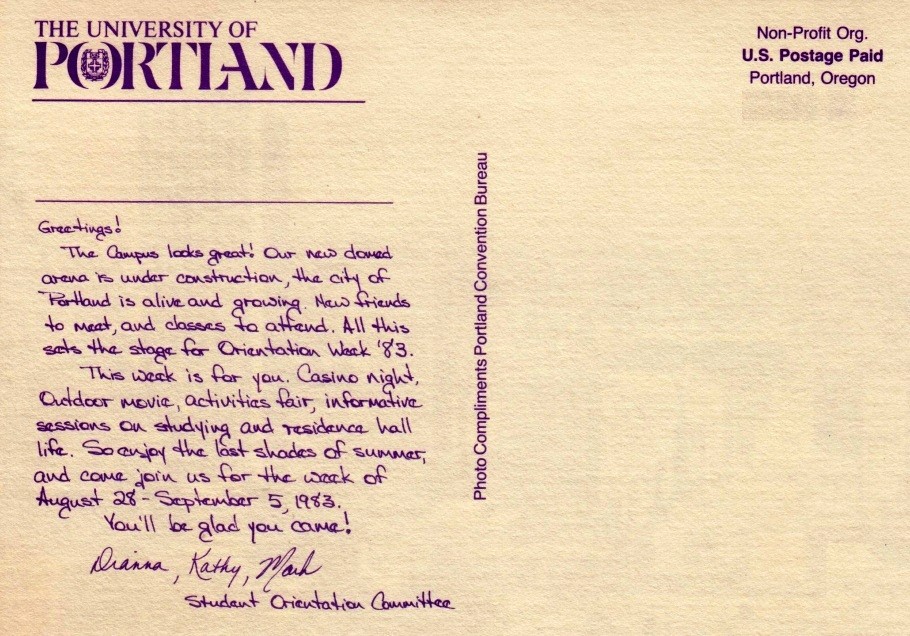 THE UNIVERSITY OF
PORTLAND
Non-Profit Org.
U.S. Postage Paid
Portland, Oregon
Greetings!
The Campus looks great! Our new domed
arena is under construction, the city of
Portland is alive and growing. New friends
to meet, and classes to attend. All this
sets the stage for Orientation Week '83.
This week is for you. Casino night,
Outdoor movie, activities fair, informative
sessions on studying and residence hall
life. So enjoy the last shades of summer,
and come join us for the week of
August 28 - September 5, 1983.
You'll be glad you came!
Dianna, Kathy, Mark
Student Orientation Committee
Photo Compliments Portland Convention Bureau